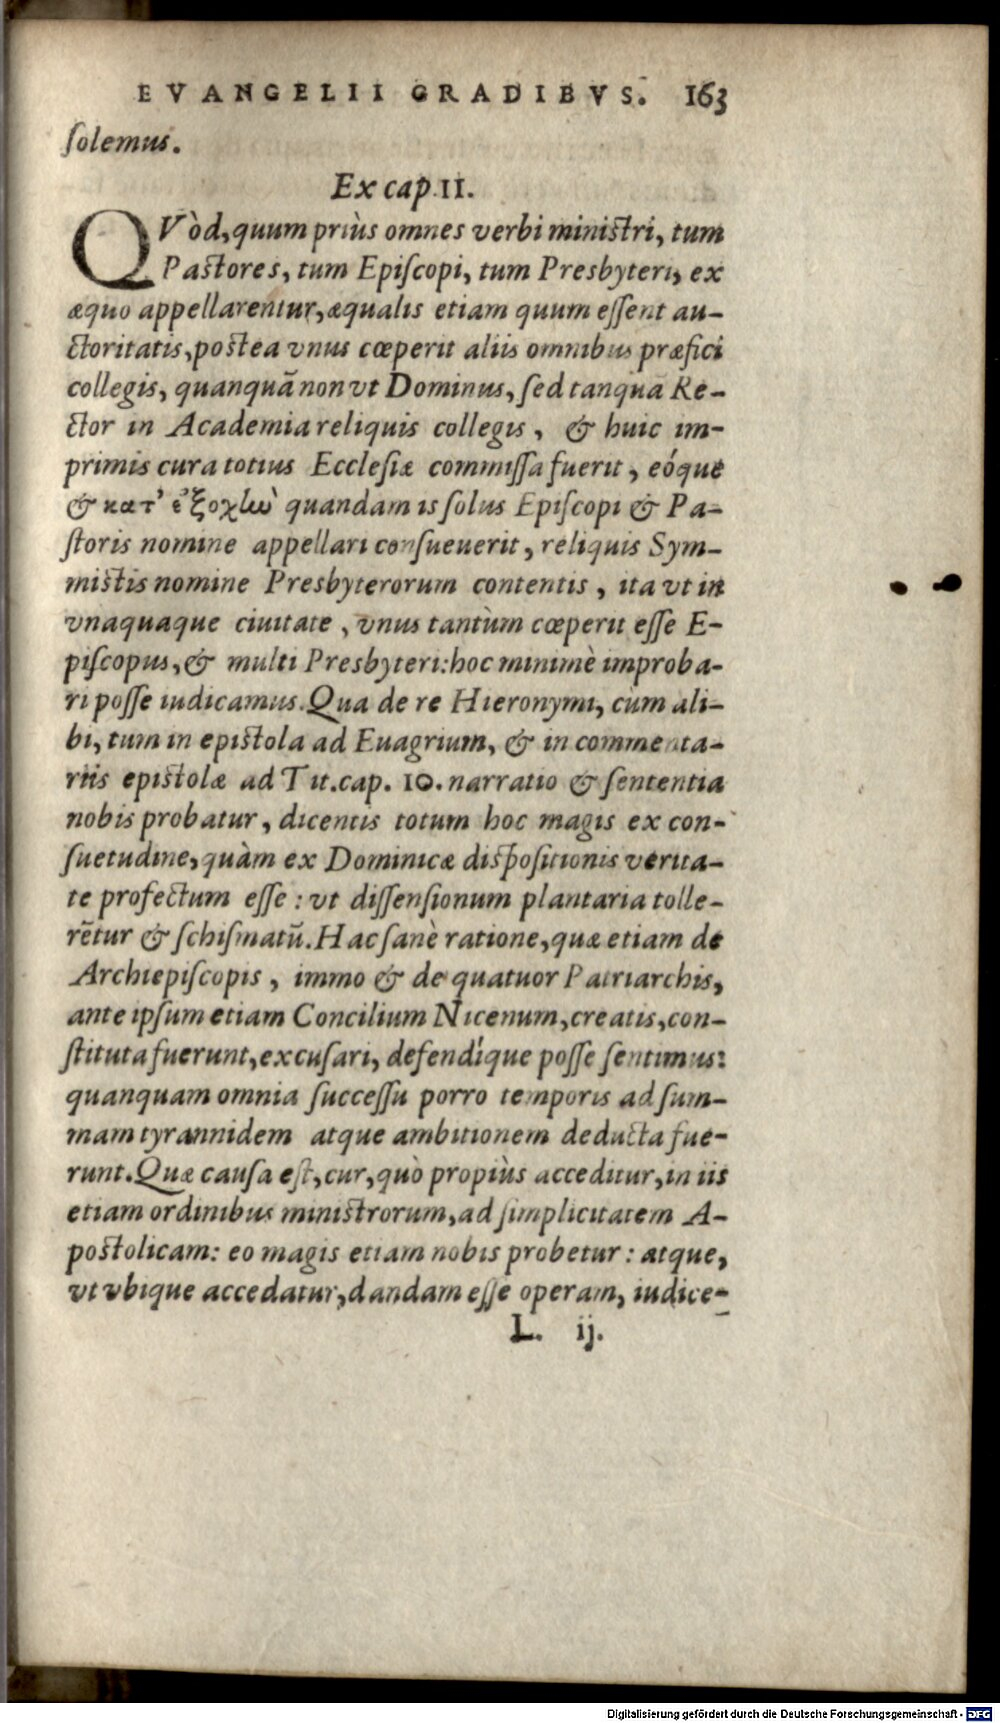 EVANGELII GRADIBVS. 163
ſolemus.
Ex cap. II.
QVòd, quum priùs omnes verbi miniſtri, tum
Paſtores, tum Epiſcopi, tum Presbyteri, ex
æquo appellarentur, æqualis etiam quum eſſent au-
ctoritatis, poſtea vnus cœperit aliis omnibus præfici
collegis, quanquã non vt Dominus, ſed tanquã Re-
ctor in Academia reliquis collegis, & huic im-
primis cura totius Eccleſiæ commiſſa fuerit, eóque
& κατ' ἐξοχὴν quandam is ſolus Epiſcopi & Pa-
ſtoris nomine appellari conſueuerit, reliquis Sym-
miſtis nomine Presbyterorum contentis, ita vt in
vnaquaque ciuitate, vnus tantùm cœperit eſſe E-
piſcopus, & multi Presbyteri: hoc minimè improba-
ri poſſe iudicamus. Qua de re Hieronymi, cùm ali-
bi, tum in epiſtola ad Euagrium, & in commenta-
riis epiſtolæ ad Tit. cap. 10. narratio & ſententia
nobis probatur, dicentis totum hoc magis ex con-
ſuetudine, quàm ex Dominicæ diſpoſitionis verita-
te profectum eſſe: vt diſſenſionum plantaria tolle-
rẽtur & ſchiſmatũ. Hac ſanè ratione, quæ etiam de
Archiepiſcopis, immo & de quatuor Patriarchis,
ante ipſum etiam Concilium Nicenum, creatis, con-
ſtituta fuerunt, excuſari, defendíque poſſe ſentimus:
quanquam omnia ſucceſſu porro temporis ad ſum-
mam tyrannidem atque ambitionem deducta fue-
runt. Quæ cauſa eſt, cur, quò propiùs acceditur, in iis
etiam ordinibus miniſtrorum, ad ſimplicitatem A-
poſtolicam: eo magis etiam nobis probetur: atque,
vt vbique accedatur, dandam eſſe operam, iudice-
L. ij.
Digitalisierung gefördert durch die Deutsche Forschungsgemeinschaft - DFG